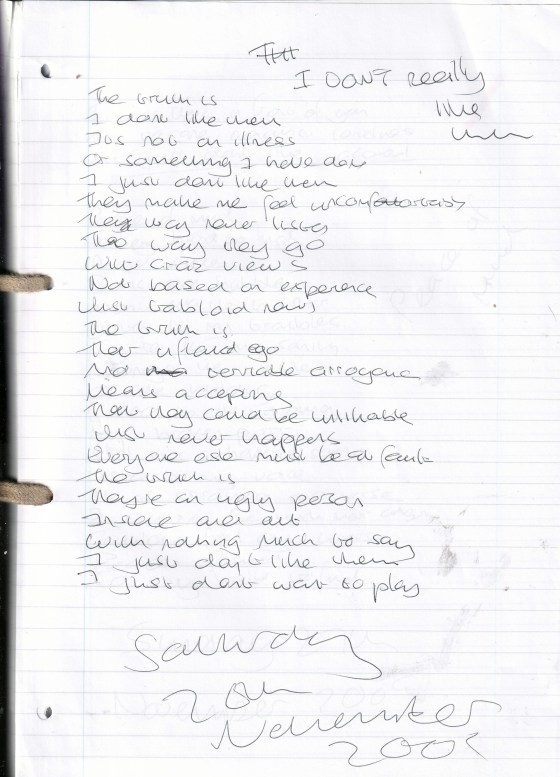 I DON'T really
like
them
The truth is
I dont like them
Its not an illness
Or something I have done
I just dont like them
They make me feel uncomfortably
They way never listen
The way they go
With craz views
Not based on experence
Just tabloid news
The truth is
Their inflated ego
And terriable arrogance
Means accepting
That they could be unlikable
Just never happens
Everyone else must be at fault
The truth is
They're an ugly person
Inside and out
With nothing much to say
I just don't like them
I just dont want to play
Saturday
20th
November